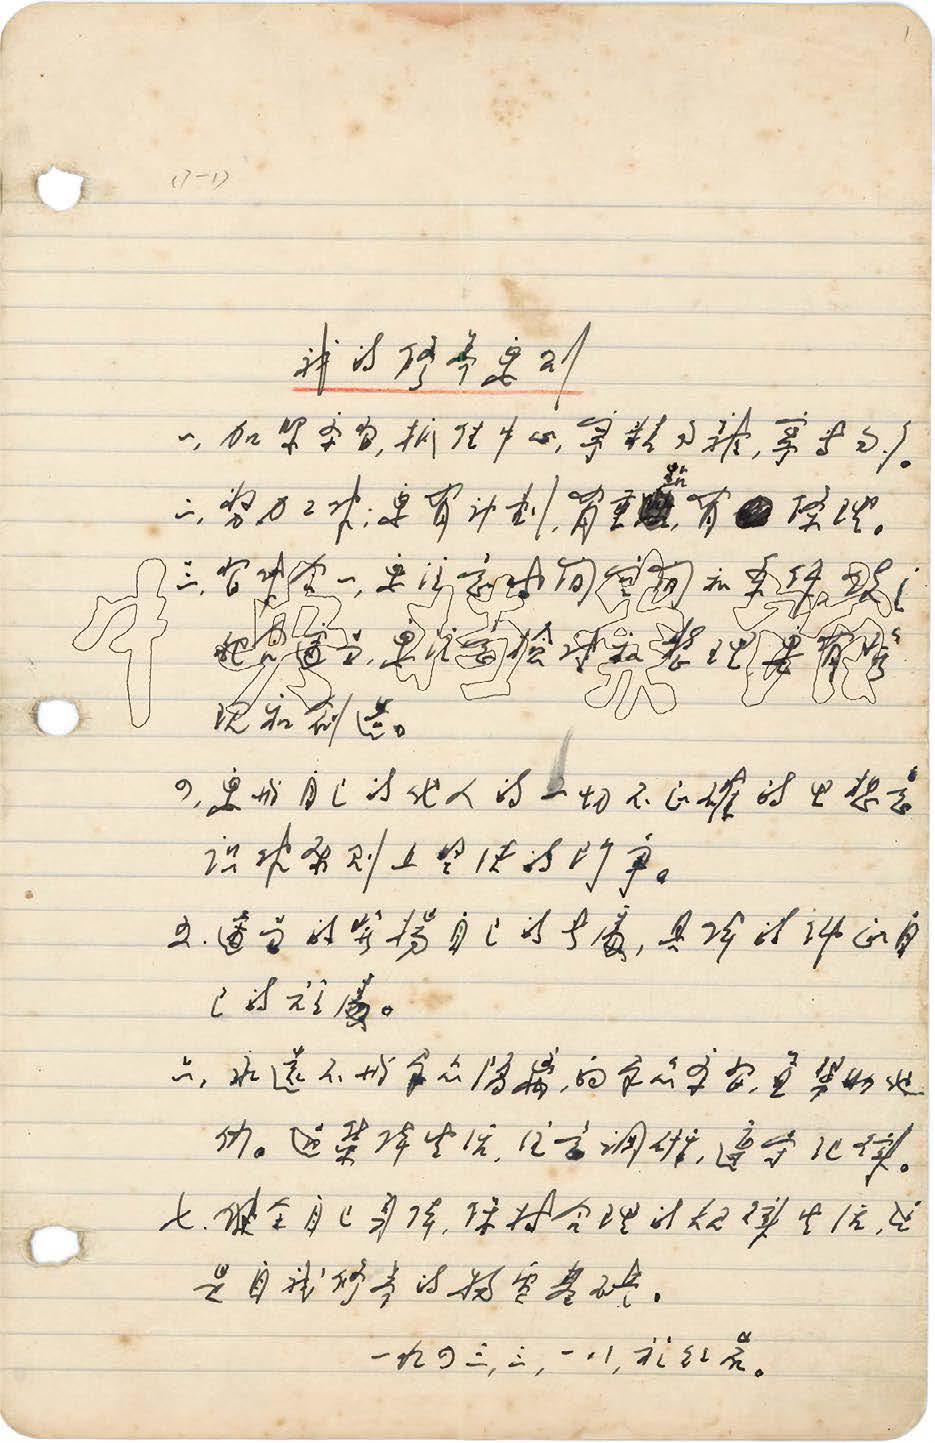 (7-1)
我的修养要则
一、加紧学习,抓住中心,宁精勿杂,宁专勿多。
二、努力工作,要有计划,有重点,有条理。
三、习作合一,要注意时间空间和条件,使之
配合适当,要注意检讨和整理,要有发
现和创造。
四、要与自己的他人的一切不正确的思想意
识作原则上坚决的斗争。
五、适当的发扬自己的长处,具体的纠正自
己的短处。
六、永远不与群众隔离,向群众学习,并帮助他
们。过集体生活,注意调研,遵守纪律。
七、健全自己身体,保持合理的规律生活,这
是自我修养的物质基础。
一九四三,三,一八,于红岩。
中央档案馆